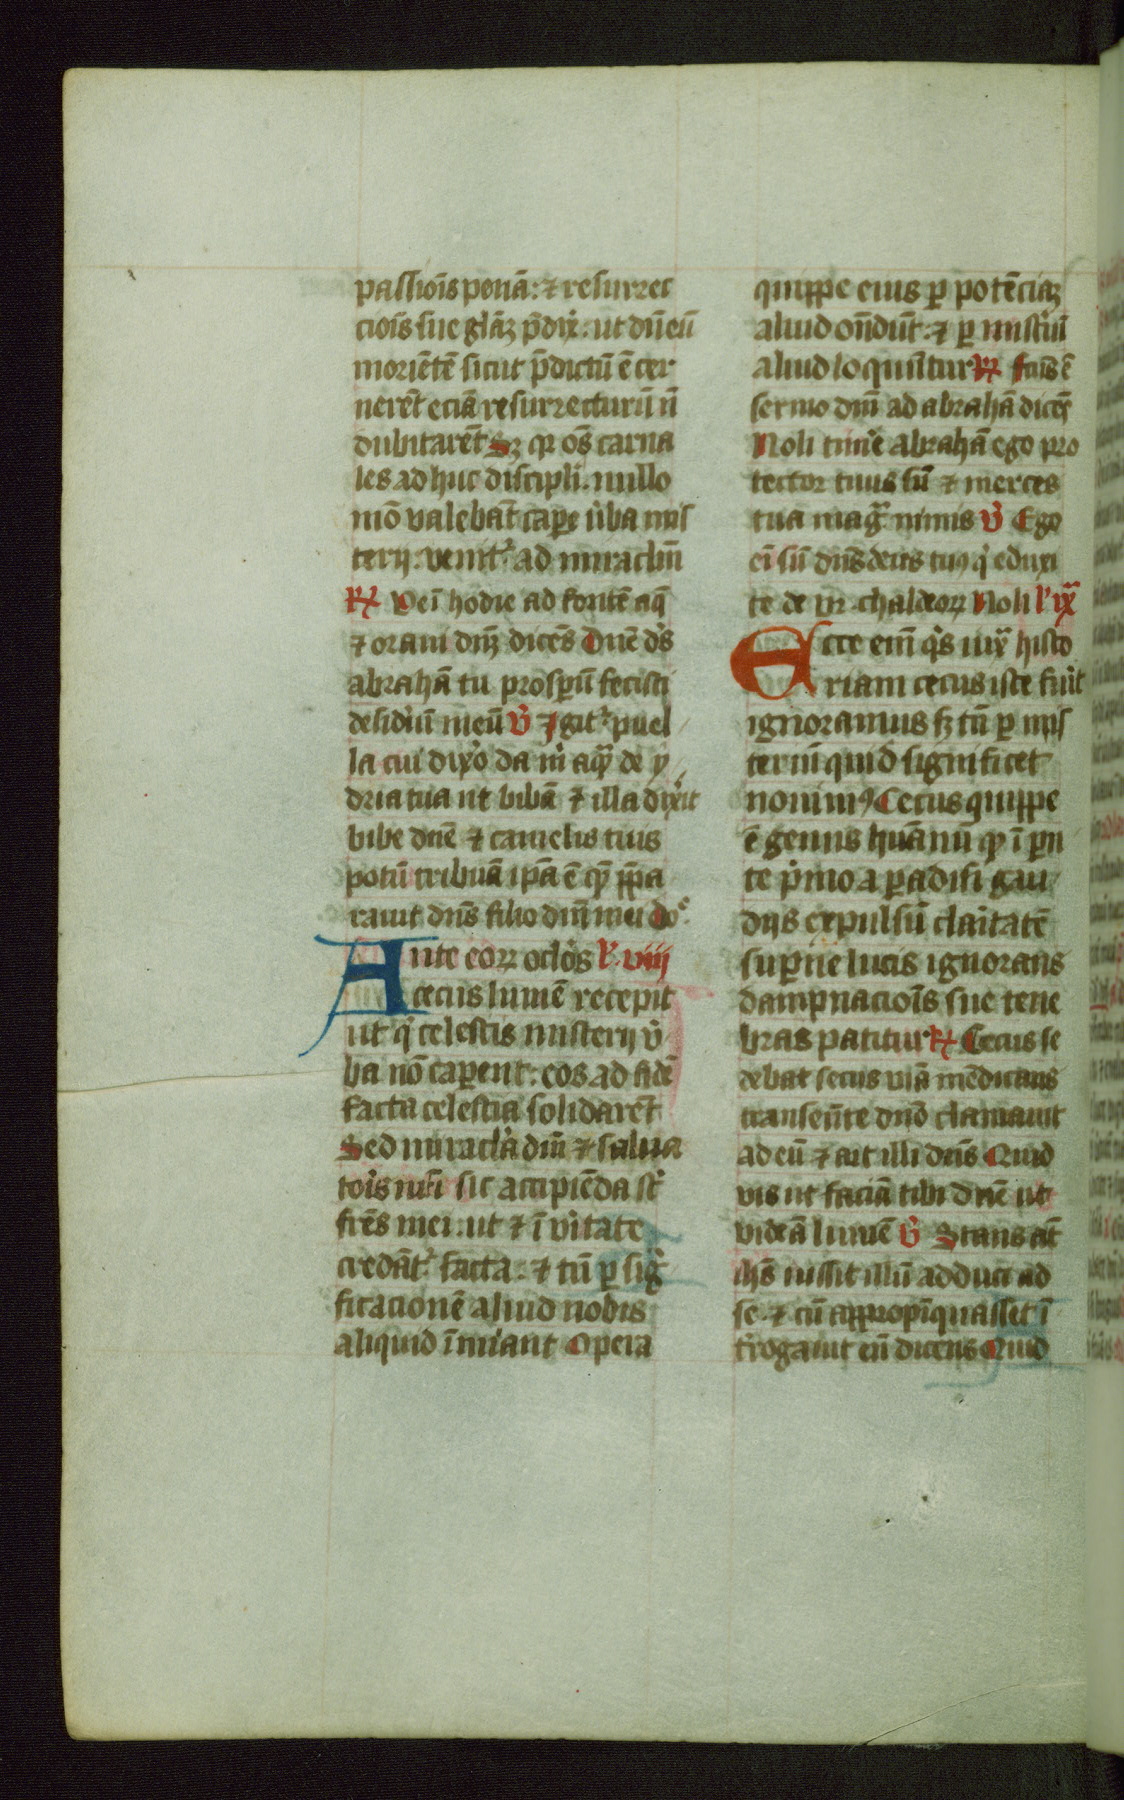 passiōis penā: ⁊ resurrec
ciōis sue gl̄aꝫ p̄dix̄. ut cū eū
moriētē sicut p̄dictū ē cer
nerēt eciā resurrecturū nō
dubitarēt Sꝫ qꝛ os̄ carna
les ad huc discipl̓i. nullo
mō valebāt caꝑe v̓ba mis
terij. venit᷒ ad miraclm̄
R̸ Veī hodie ad fontē aq̄
⁊ oraui dm̄ꝫ dicēs Dn̄e ds̄
abrahā tu prosꝑū fecisti
desid̓iū meū v̓ Igit᷒ puel
la cui dix̓o da m̓ aq̄ꝫ de y
dria tua ut bibā ⁊ illa dix̓it
bibe dn̄e ⁊ camelis tuis
potū tribuā ip̄a ē qꝫ p̄pa
rauit dn̄s filio dn̄i mei Do᷒
Ante eoꝝ oclōs l᷒. viij
cecus lumē recepit
ut q̓ celestis misterij v̓
ba nō caꝑent: eos ad fidē
facta celestia solidarēt
Sed miracl̓a dn̄i ⁊ salua
tor̓is nr̄i sic accipiēda st̄
fr̄es mei. ut ⁊ ī v̓itate
credāt᷒ facta. ⁊ tn̄ ꝑ sig̓
ficacionē aliud nobis
aliquid īnuāt Opera
quippe eius ꝑ potēciaꝫ
aliud on̄dūt: ⁊ ꝑ mist̓iū
aliud loquūtur R̸ fcūs ē
sermo dn̄i ad abrahā dicēs
Noli tim̓e abrahā ego pro
tector tuus sū ⁊ merces
tua mag᷒ nimis v̓ Ego
ei̅ sū dn̄s deus tuꝰ q̓ eduxi
te de vr chaldeoꝝ Noli l᷒ ix᷒
Ecce eni̅ q̓s iux̄ histo
riam cecus iste fu̓it
ignoramus sꝫ tn̄ ꝑ mis
teriū quid significet
nouimꝰ Cecus quippe
ē genus hūanū qꝫ ī pꝛn
te p̓mo a ꝑadisi gau
dijs expulsū clar̓itatē
suꝑne lucis ignorans
dampnaciōis sue tene
bras patitur R̸ Cecus se
debat secus viā mēdicans
transeūte dn̄o clamauit
ad eū ⁊ ait illi dn̄s Quid
vis ut faciā tibi dn̄e ut
videā lumē v̓ Stans aūt
ih̄s iussit illū adduci ad
se. ⁊ cū appropīquasset ī
t̓rogauit eū dicens Quid